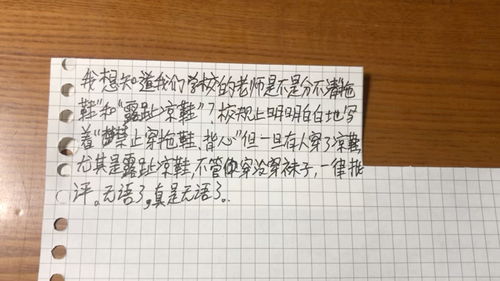 我想知道我们学校的老师是不是分不清拖
鞋"和"露趾凉鞋"？校规上明明白白地写
着"禁止穿拖鞋、背心"但一旦有人穿了凉鞋,
尤其是露趾凉鞋,不管你穿没穿袜子,一律批
评。无语了,真是无语了。